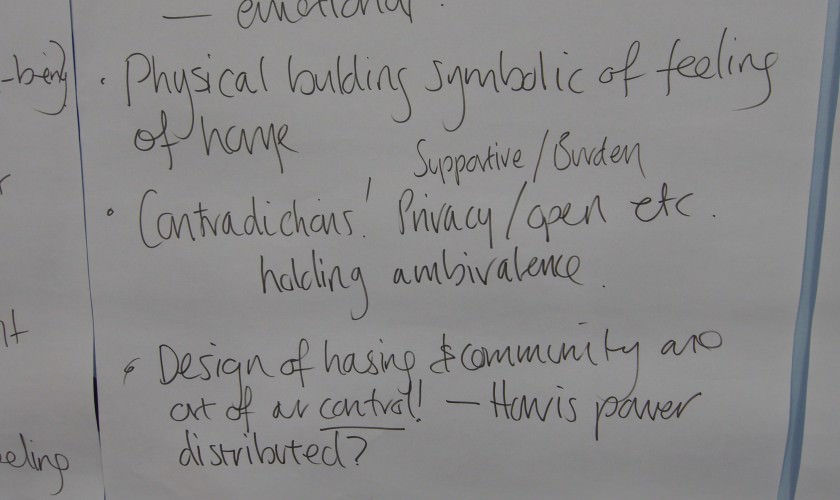 — emotional.
-being)
• Physical building symbolic of feeling
of home
Supportive / Burden
• Contradictions! Privacy / open etc.
holding ambivalence.
• Design of housing & community are
out of our control! — How is power
distributed?
eeling